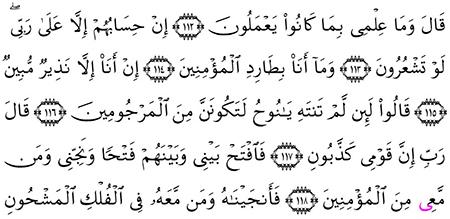 قَالَ وَمَا عِلْمِى بِمَا كَانُوا۟ يَعْمَلُونَ ﴿١١٢﴾ إِنْ حِسَابُهُمْ إِلَّا عَلَىٰ رَبِّى ۖ
لَوْ تَشْعُرُونَ ﴿١١٣﴾ وَمَآ أَنَا۠ بِطَارِدِ ٱلْمُؤْمِنِينَ ﴿١١٤﴾ إِنْ أَنَا۠ إِلَّا نَذِيرٌ مُّبِينٌ
﴿١١٥﴾ قَالُوا۟ لَئِن لَّمْ تَنتَهِ يَـٰنُوحُ لَتَكُونَنَّ مِنَ ٱلْمَرْجُومِينَ ﴿١١٦﴾ قَالَ
رَبِّ إِنَّ قَوْمِى كَذَّبُونِ ﴿١١٧﴾ فَٱفْتَحْ بَيْنِى وَبَيْنَهُمْ فَتْحًا وَنَجِّنِى وَمَن
مَّعِىَ مِنَ ٱلْمُؤْمِنِينَ ﴿١١٨﴾ فَأَنجَيْنَـٰهُ وَمَن مَّعَهُۥ فِى ٱلْفُلْكِ ٱلْمَشْحُونِ